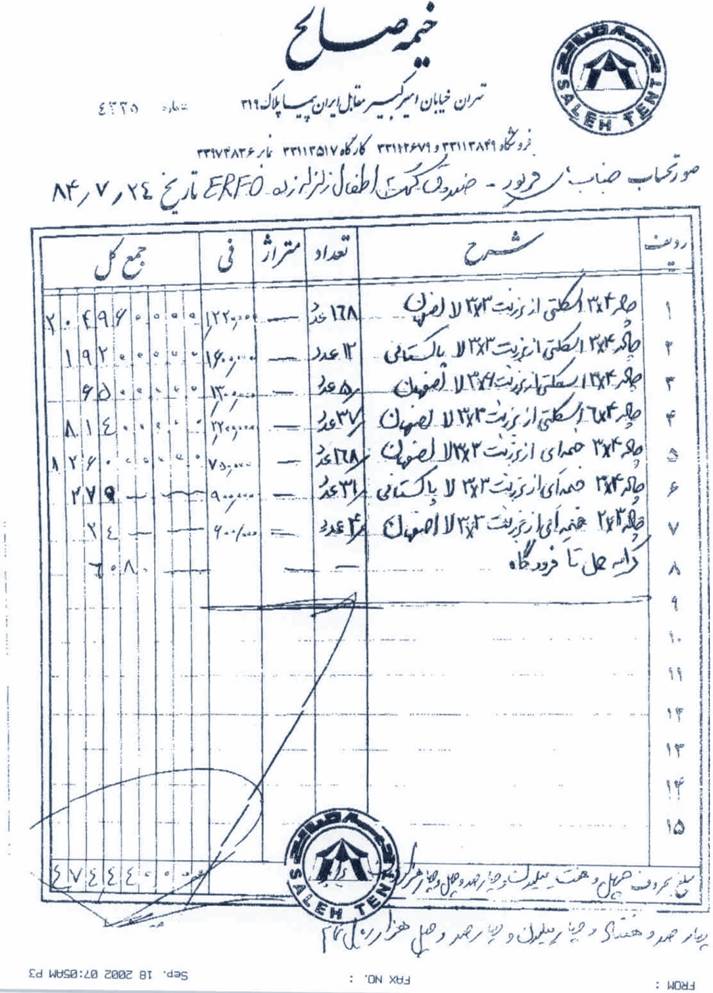 خیمه صالح
SALEH TENT
تهران خیابان امیرکبیر مقابل ایران پیما پلاک ۳۱۹
شماره ۴۳۳۵
فروشگاه ۳۳۱۱۳۸۴۹ و ۳۳۱۱۲۶۷۹ کارگاه ۳۳۱۱۳۵۱۷ نمابر ۳۳۹۷۴۸۳۶
صورتحساب جناب فریور - صندوق کمک اطفال زلزله زده ERFO تاریخ ۸۴/۷/۲۴
ردیف شرح تعداد متراژ فی جمع کل
۱ چادر ۳x۴ اسکلتی از برزنت ۳x۳ لا اصفهان ۱۶۸ عدد — ۱۲۲۰/۰۰۰ ۲۰۴۹۶۰۰۰۰
۲ چادر ۳x۴ اسکلتی از برزنت ۳x۳ لا پاکستانی ۱۲ عدد — ۱۶۰۰/۰۰۰ ۱۹۲۰۰۰۰۰
۳ چادر ۳x۴ اسکلتی از برزنت لا اصفهان ۵ عدد — ۱۳۰۰/۰۰۰ ۶۵۰۰۰۰۰
۴ چادر ۶x۴ اسکلتی از برزنت ۳x۳ لا اصفهان ۳۷ عدد — ۲۲۰۰/۰۰۰ ۸۱۴۰۰۰۰۰
۵ چادر ۳x۴ خیمه‌ای از برزنت ۳x۳ لا اصفهان ۱۶۸ عدد — ۷۵۰/۰۰۰ ۱۲۶۰
۶ چادر ۳x۴ خیمه‌ای از برزنت ۳x۳ لا پاکستانی ۳۱ عدد — ۹۰۰/۰۰۰ ۲۷۹ — —
۷ چادر ۲x۳ خیمه‌ای از برزنت ۳x۳ لا اصفهان ۴ عدد — ۶۰۰/۰۰۰ ۲۴ — —
۸ کرایه حمل تا فرودگاه — — ۶۰۸۰ —
۹
۱۰
۱۱
۱۲
۱۳
۱۴
۱۵
مبلغ بحروف چهل و هفت میلیون و چهارصد و چهل و چهار هزار ۴۷۴۴۴۰۰۰
SALEH TENT
چهارصد و هفتاد و چهار میلیون و چهارصد و چهل هزار ریال تمام
FROM : FAX NO. : Sep. 18 2002 07:05AM P3